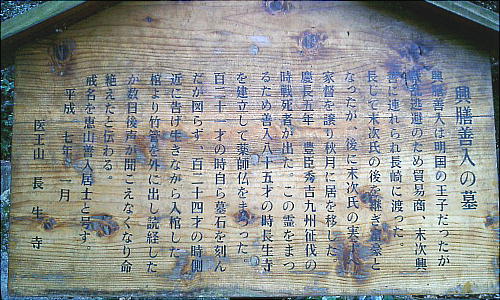 興膳善入の墓
興膳善入は明国の王子だったが
逃避のため貿易商、末次興
善に連れられ長崎に渡った。
長じて末次氏の後を継ぎ富豪と
なったが、後に末次氏の実子に
家督を譲り秋月に居を移した
慶長五年 豊臣秀吉九州征伐の
時戦死者が出た。この霊をまつ
るため善入八十五才の時長生寺
を建立して薬師仏をまつった
百二十一才の時自ら墓石を刻ん
だが図らず、百二十四才の時側
近に告げ生きながら入棺した
棺より竹筒を外に出し読経した
が数日後声が聞こえなくなり命
絶えたと伝わる。
戒名を恵山善入居士と号す
平成 七年 一月
医王山 長生寺